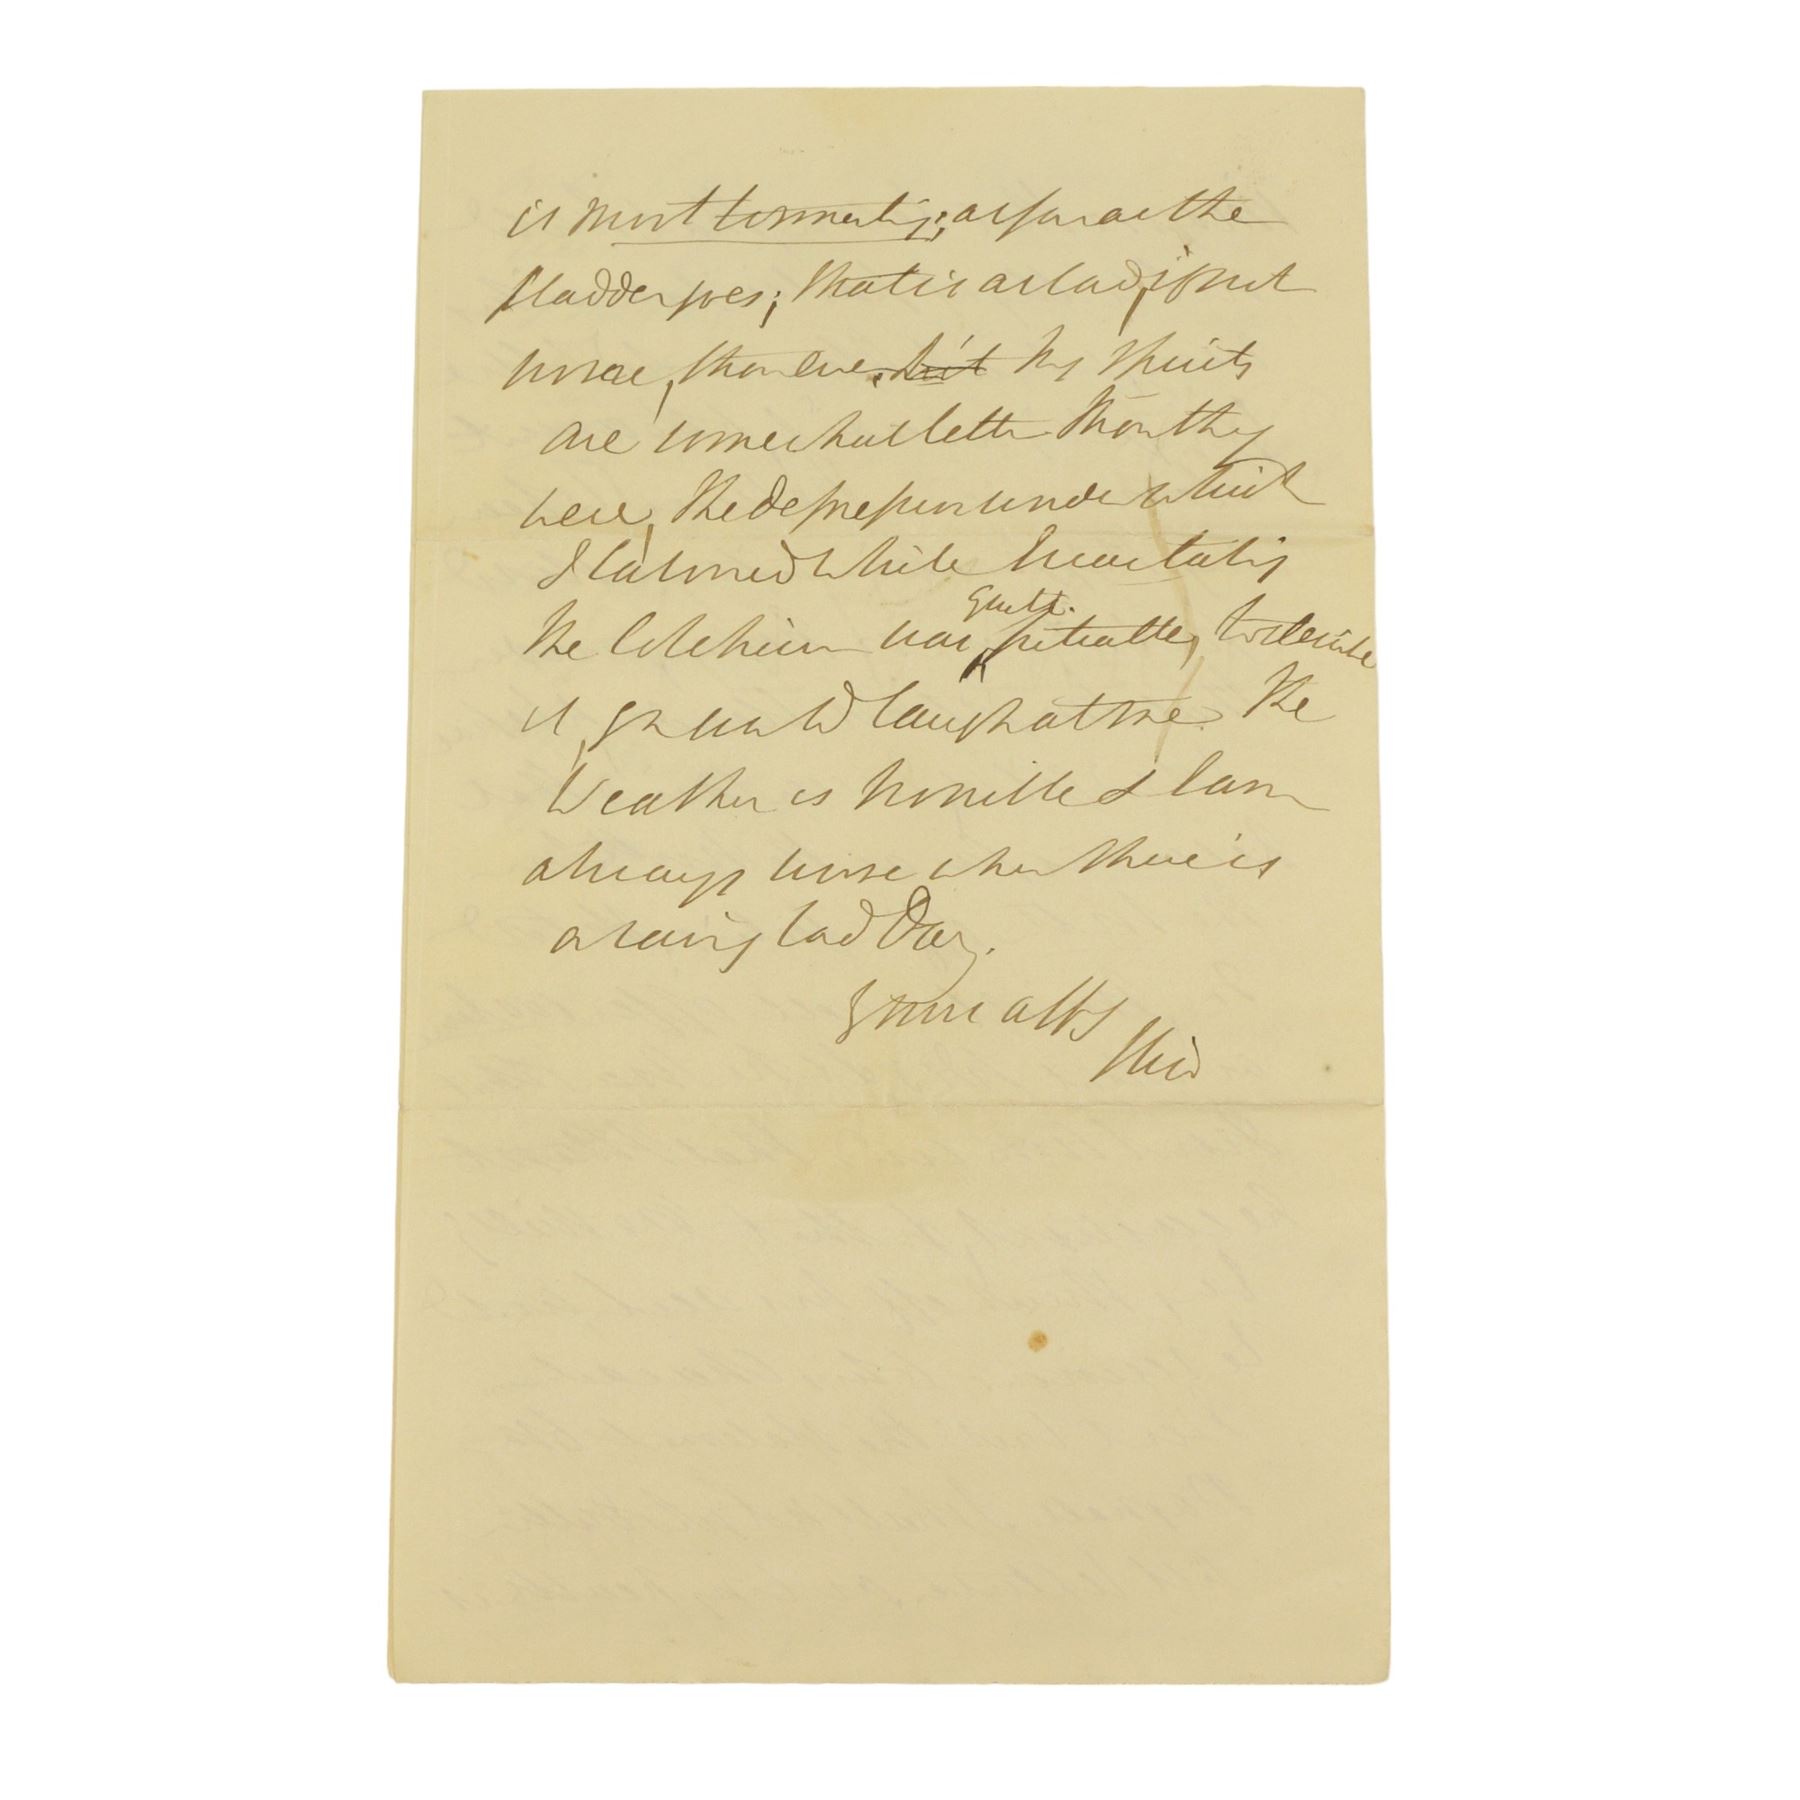 is most tormenting; as far as the
bladder goes; that is as bad, if not
worse, than ever, but My spirits
are somewhat better than they
were, the depression under which
I laboured while I was taking
the Colchicum was quite pitiable, to describe
it, you would laugh at me. The
Weather is horrible & I am
always worse when there is
a rainy bad Day.
Yours affly